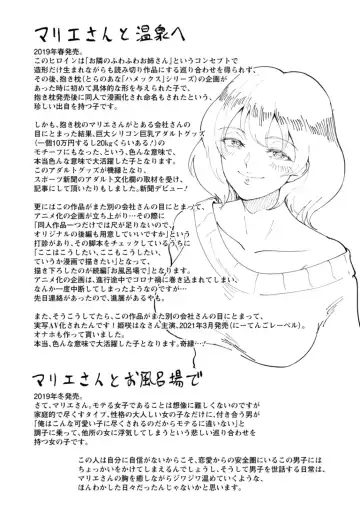 マリエさんと温泉へ
2019年春発売。
このヒロインは『お隣のふわふわお姉さん』というコンセプトで
造形だけ生まれながらも読み切り作品にする巡り合わせを得られず、
その後、抱き枕（とらのあな『ハメックス』シリーズ）の企画が
あった時に初めて具体的な形を与えられた子で、
抱き枕発売後に同人で漫画化され命名もされたという、
珍しい出自を持つ子です。
しかも、抱き枕のマリエさんがとある会社さんの
目にとまった結果、巨大シリコン巨乳アダルトグッズ
（一個10万円するし20kgくらいある！）の
モチーフにもなった、という、色んな意味で、
本当色んな意味で大活躍した子となります。
このアダルトグッズが機縁となり、
スポーツ新聞のアダルト文化欄の取材を受け、
記事にして頂いたりもしました。新聞デビュー！
更にはこの作品がまた別の会社さんの目にとまって、
アニメ化の企画が立ち上がり…その際に
「同人作品一つだけでは尺が足りないので、
オリジナルの後編も用意していいですか」という
打診があり、その脚本をチェックしているうちに
「ここはこうしたい、ここもこうしたい、
ていうか漫画で描きたい」となって、
描き下ろしたのが続編『お風呂場で』となります。
アニメ化の企画は、進行途中でコロナ禍に巻き込まれてしまい、
なんか一度中断してしまったようなのですが…
先日連絡があったので、進展があるやも。
また、そうこうしてたら、この作品がまた別の会社さんの目にとまって、
実写AV化されたんです！姫咲はなさん主演、2021年3月発売（にーてんごレーベル）。
オナホも作って貰いました。
本当、色んな意味で大活躍した子となります。奇縁…！
マリエさんとお風呂場で
2019年冬発売。
さて、マリエさん。モテる女子であることは想像に難しくないのですが
家庭的で尽くすタイプ、性格の大人しい女の子なだけに、付き合う男が
「俺はこんな可愛い子に尽くされるのだからモテるに違いない」と
調子に乗って、他所の女に浮気してしまうという悲しい巡り合わせを
持つ女の子です。
この人は自分に自信がないからこそ、恋愛からの安全圏にいるこの男子には
ちょっかいをかけてしまえるんでしょうし、そうして男子を世話する日常は、
マリエさんの胸を癒しながらジワジワ温めていくような、
ほんわかした日々だったんじゃないかと思います。